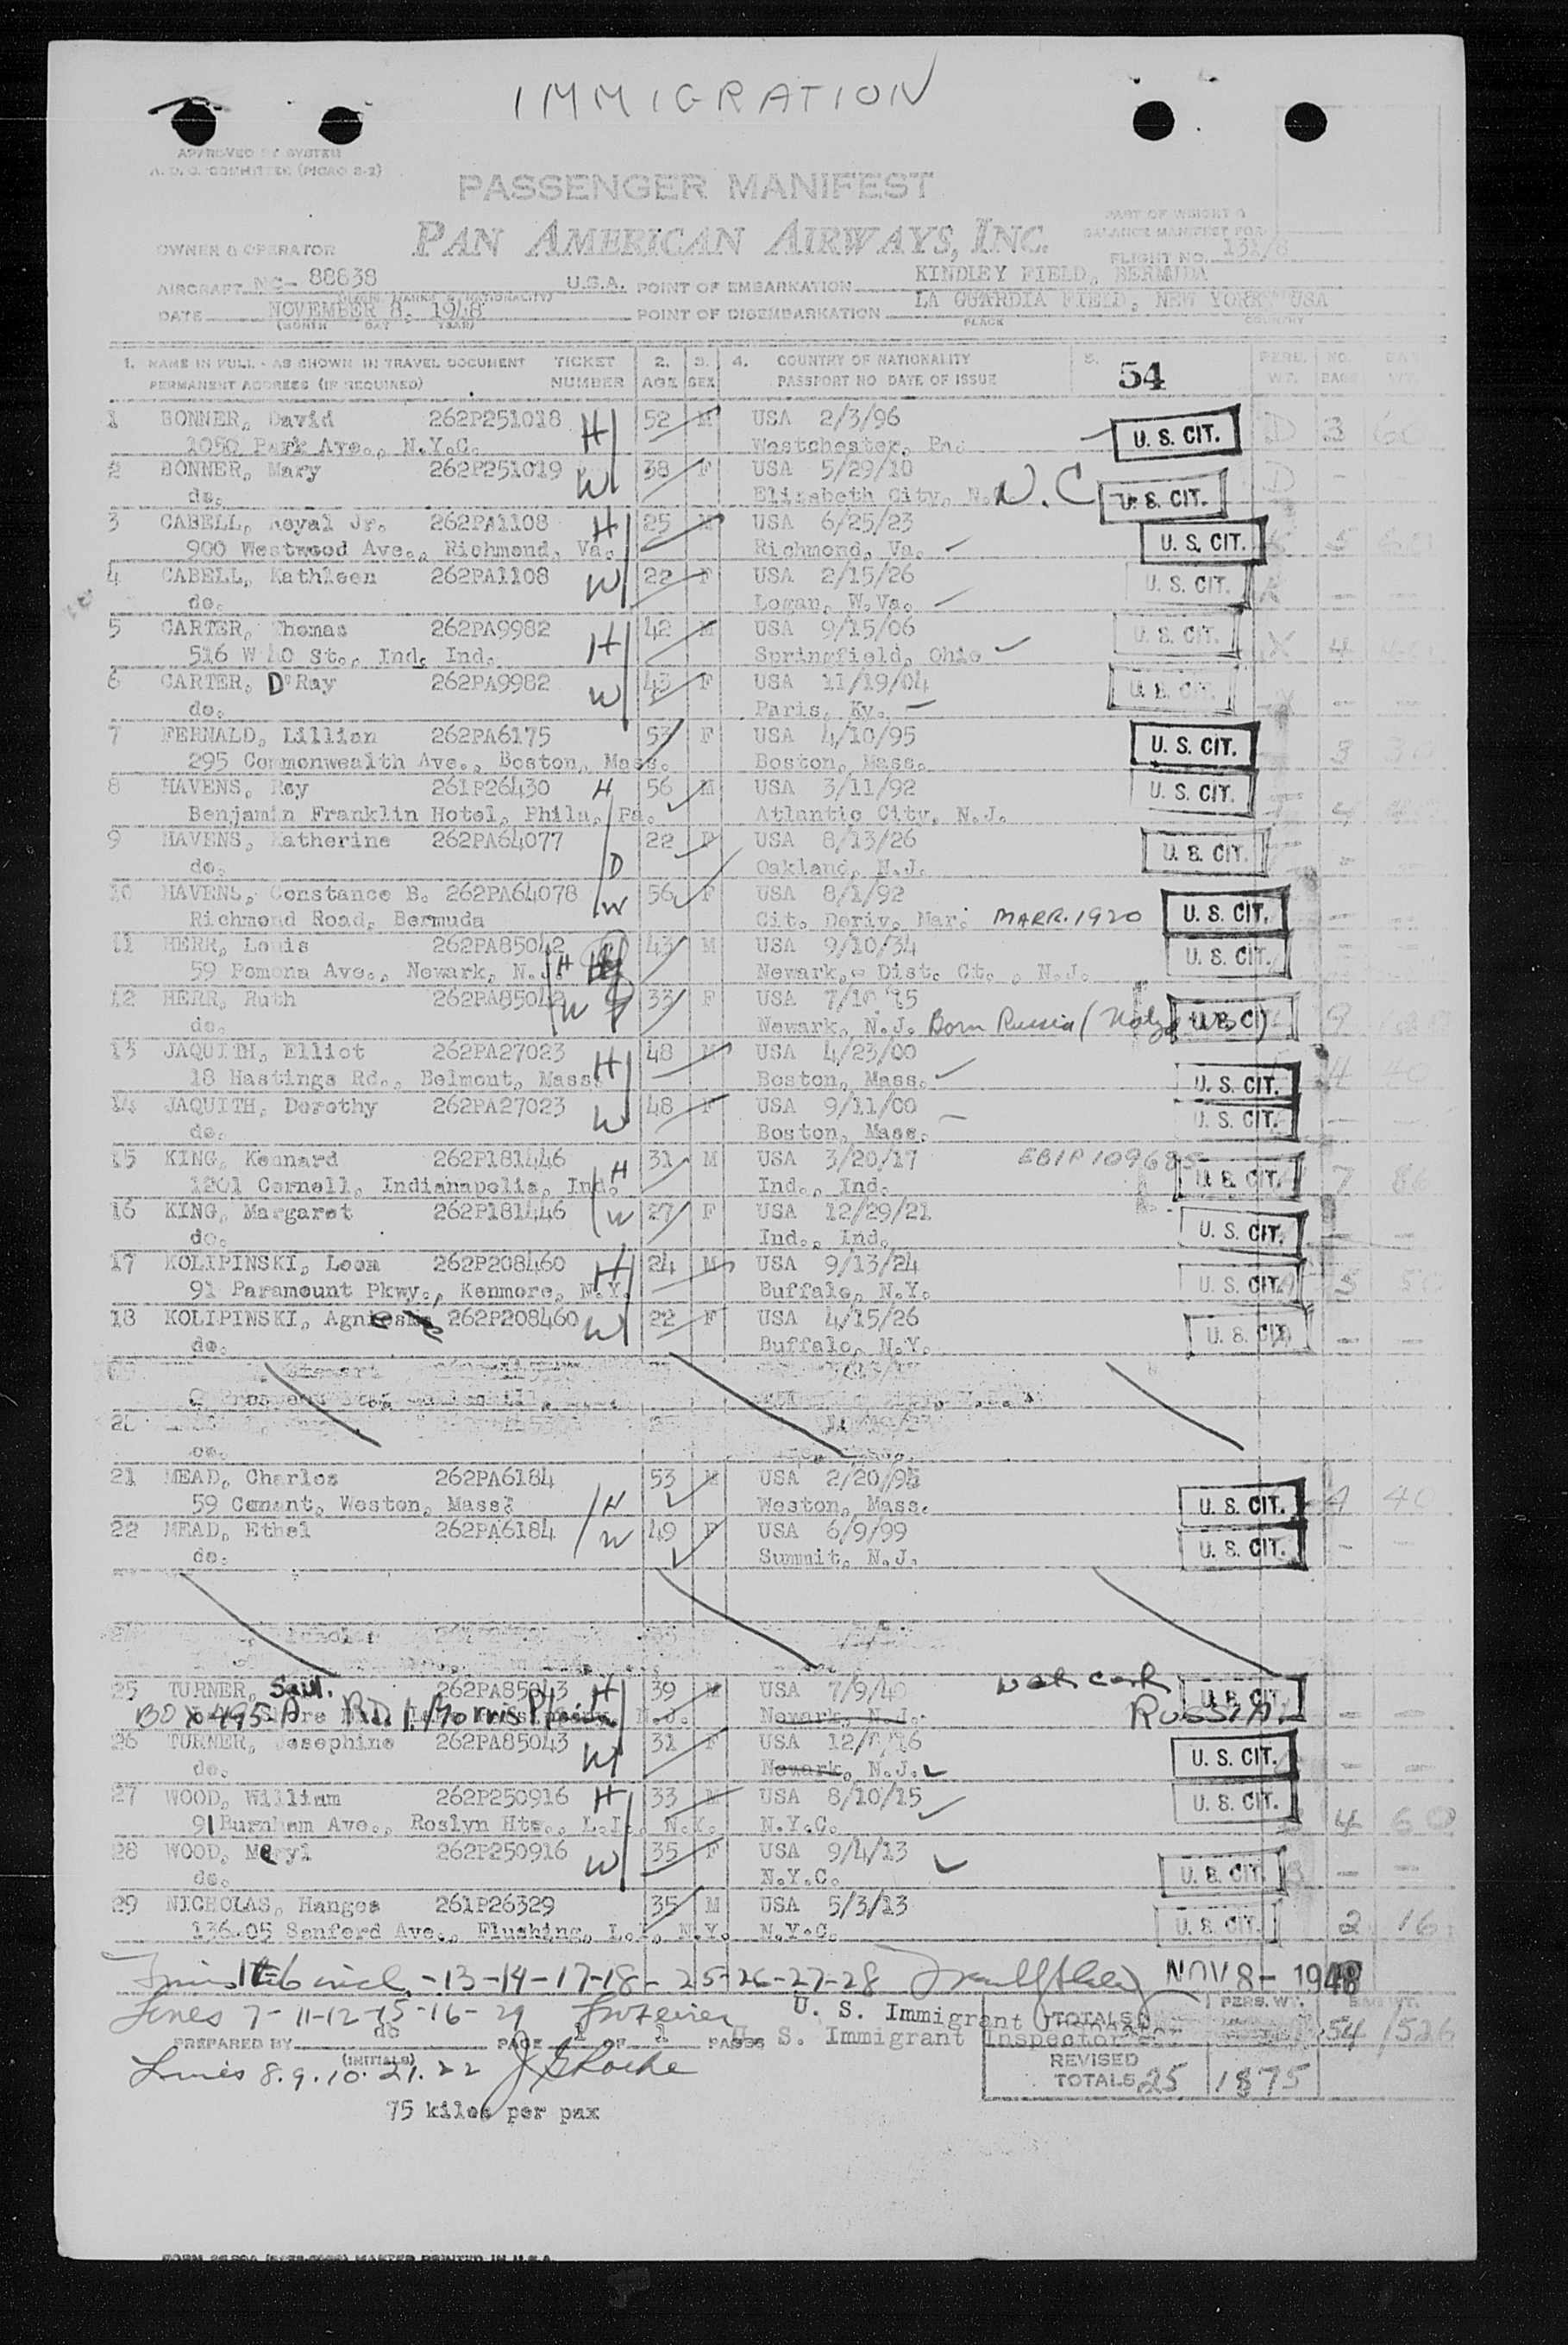 IMMIGRATION
APPROVED BY SYSTEM
A. D. C. COMMITTEE (PICAO S-2)
PASSENGER MANIFEST
PAN AMERICAN AIRWAYS, INC.
PART OF WEIGHT &
BALANCE MANIFEST FOR
OWNER & OPERATOR
FLIGHT NO. 131/8
AIRCRAFT NC- 88838 U.S.A. POINT OF EMBARKATION KINDLEY FIELD, BERMUDA
DATE NOVEMBER 8, 1948 POINT OF DISEMBARKATION LA GUARDIA FIELD, NEW YORK USA
(MONTH DAY YEAR) PLACE COUNTRY
1. NAME IN FULL - AS SHOWN IN TRAVEL DOCUMENT TICKET 2. 3. 4. COUNTRY OF NATIONALITY 5. 54 PERS. NO.
PERMANENT ADDRESS (IF REQUIRED) NUMBER AGE SEX PASSPORT NO DATE OF ISSUE WT. BAGS WT.
1 BONNER, David 262P251018 H 52 M USA 2/3/96 U. S. CIT. D 3 60
1050 Park Ave., N.Y.C. Westchester, Pa.
2 BONNER, Mary 262P251019 W 38 F USA 5/29/10 U. S. CIT. D - -
do. Elizabeth City, N. N.C
3 CABELL, Royal Jr. 262PA1108 H 25 M USA 6/25/23 U. S. CIT. 5
900 Westwood Ave., Richmond, Va. Richmond, Va.
4 CABELL, Kathleen 262PA1108 W 22 F USA 2/15/26 U. S. CIT. - -
do. Logan, W.Va.
5 CARTER, Thomas 262PA9982 H 42 M USA 9/15/06 U. S. CIT. X 4
516 W 40 St., Ind. Ind. Springfield, Ohio
6 CARTER, D'Ray 262PA9982 W 43 F USA 11/19/04 U. S. CIT. - -
do. Paris, Ky.
7 FERNALD, Lillian 262PA6175 53 F USA 4/10/95 U. S. CIT. 3 30
295 Commonwealth Ave., Boston, Mass. Boston, Mass.
8 HAVENS, Roy 261P26430 H 56 M USA 3/11/92 U. S. CIT. 4
Benjamin Franklin Hotel, Phila, Pa. Atlantic City, N.J.
9 HAVENS, Katherine 262PA64077 D 22 F USA 8/13/26 U. S. CIT. - -
do. Oakland, N.J.
10 HAVENS, Constance B. 262PA64078 W 56 F USA 8/1/92 U. S. CIT. - -
Richmond Road, Bermuda Cit. Deriv. Mar. MARR. 1920
11 HERR, Louis 262PA85042 H 43 M USA 9/10/34 U. S. CIT. - -
59 Pomona Ave., Newark, N.J. Newark, Dist. Ct., N.J.
12 HERR, Ruth 262PA85042 W 33 F USA 7/10/15 U. S. CIT. 9
do. Newark, N.J. Born Russia
13 JAQUITH, Elliot 262PA27023 H 48 M USA 4/23/00 U. S. CIT. 4 40
18 Hastings Rd., Belmont, Mass. Boston, Mass.
14 JAQUITH, Dorothy 262PA27023 W 48 F USA 9/11/00 U. S. CIT. - -
do. Boston, Mass.
15 KING, Kennard 262P181446 H 31 M USA 3/20/17 EBIP109685 U. S. CIT. 7 86
1201 Cornell, Indianapolis, Ind. Ind., Ind.
16 KING, Margaret 262P181446 W 27 F USA 12/29/21 U. S. CIT. - -
do. Ind., Ind.
17 KOLIPINSKI, Leon 262P208460 H 24 M USA 9/13/24 U. S. CIT. 5 50
91 Paramount Pkwy., Kenmore, N.Y. Buffalo, N.Y.
18 KOLIPINSKI, Agnes 262P208460 W 22 F USA 4/15/26 U. S. CIT. - -
do. Buffalo, N.Y.
20
do.
21 MEAD, Charles 262PA6184 H 53 M USA 2/20/95 U. S. CIT. 4 40
59 Conant, Weston, Mass. Weston, Mass.
22 MEAD, Ethel 262PA6184 W 49 F USA 6/9/99 U. S. CIT. - -
do. Summit, N.J.
25 TURNER, Saul. 262PA85043 H 39 M USA 7/9/40 U. S. CIT. - -
BOX 495A RD 1 Morris Plains N.J. Newark, N.J. RUSSIA.
26 TURNER, Josephine 262PA85043 W 31 F USA U. S. CIT. - -
do. Newark, N.J.
27 WOOD, William 262P250916 H 33 M USA 8/10/15 U. S. CIT. 4 60
91 Burnham Ave., Roslyn Hts., L.I., N.Y. N.Y.C.
28 WOOD, Meryl 262P250916 W 35 F USA 9/4/13 U. S. CIT. - -
do. N.Y.C.
29 NICHOLAS, Hanges 261P26329 35 M USA 5/3/13 U. S. CIT. 2 16
136-05 Sanford Ave., Flushing, L.I, N.Y. N.Y.C.
1 to 6 incl. -13-14-17-18-25-26-27-28 NOV 8- 1948
Lines 7-11-12-15-16-29 U. S. Immigrant Inspector TOTALS PERS. WT. BAG WT.
PREPARED BY do PAGE 1 OF 1 PAGES U. S. Immigrant Inspector 54 526
(INITIALS)
Lines 8.9.10.21.22 REVISED TOTALS 25 1875
75 kilos per pax